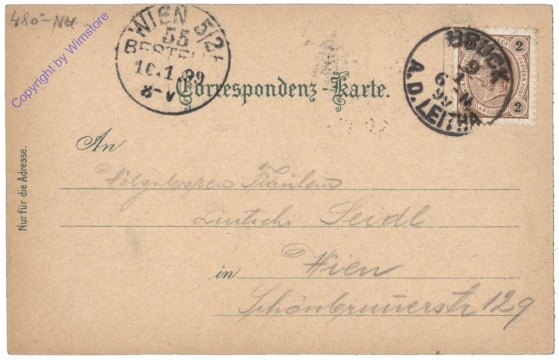 480.-
Copyright by Wimstore
WIEN 5/2
55
BESTELLT
10.1.99
8-V
BRUCK
9
1
6-N
99
A.D. LEITHA
2
2
Correspondenz-Karte.
An
Nur für die Adresse.
Fräulein
Seidl
in Wien
Schönbrunnerstr 129